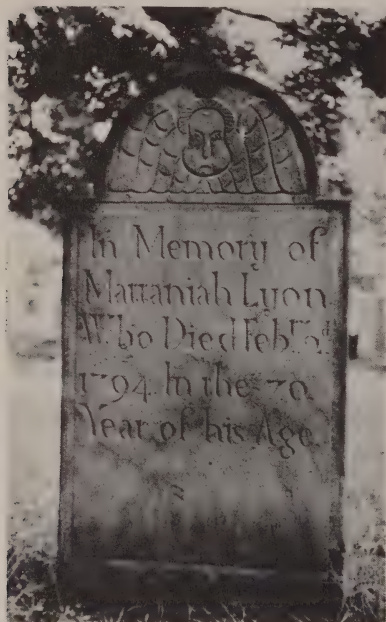 In Memory of
Mattaniah Lyon
Who Died Feb
1794. In the 70
Year of his Age.